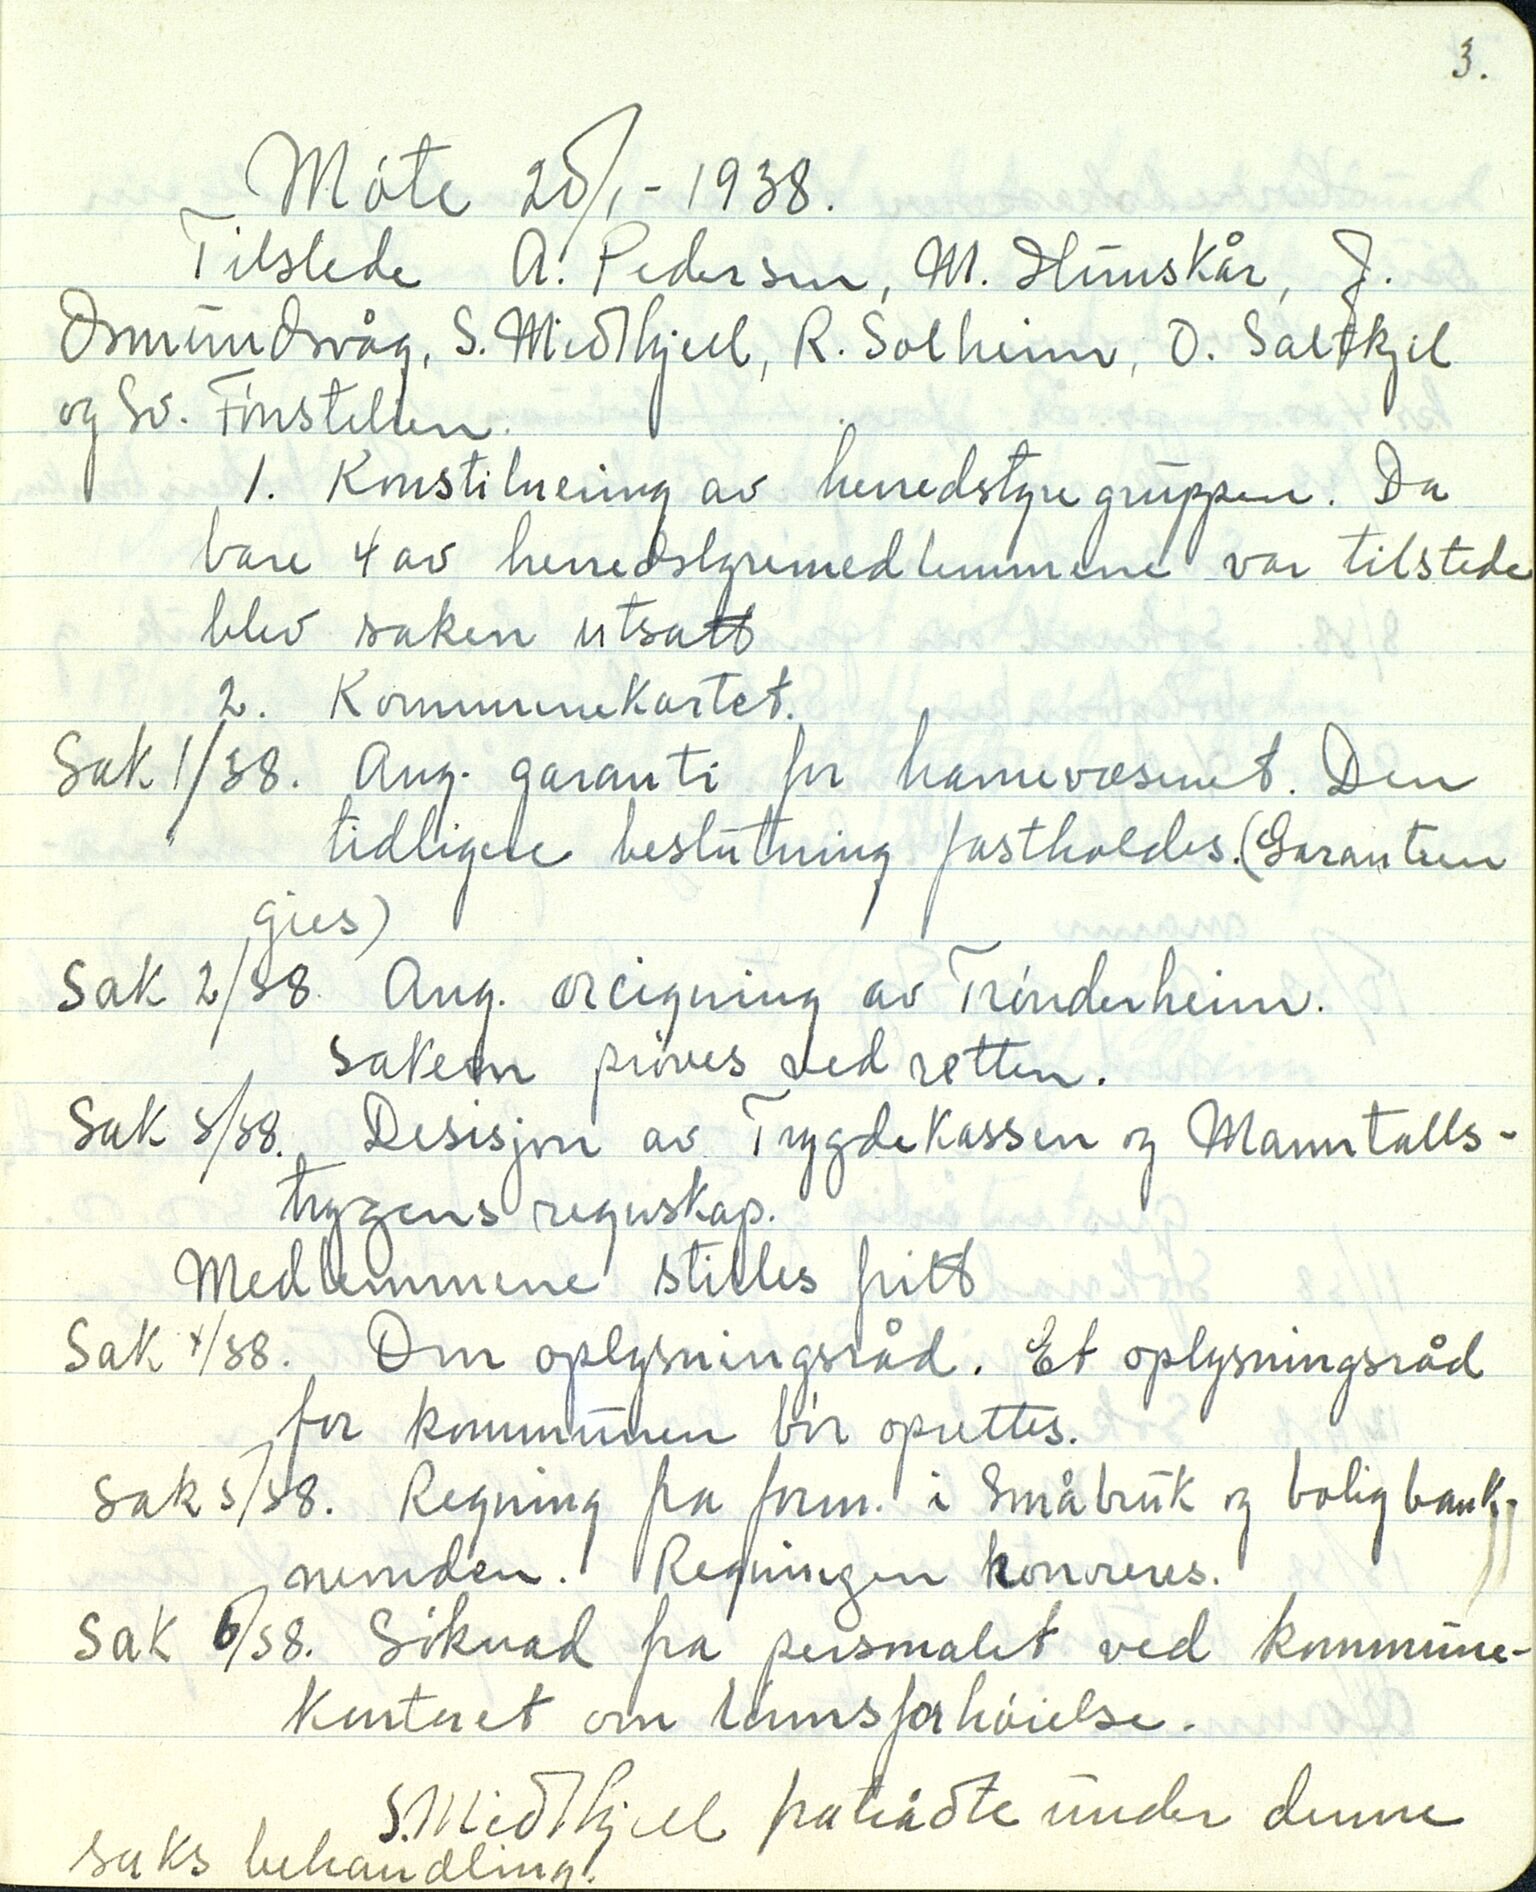 3.
Møte 20/1 - 1938.
Tilstede A. Pedersen, M. Hunskår, J.
Osmundsvåg, S. Midthjell, R. Solheim, O. Saltkjel
og Sv. Fonstelien.
1. Konstituering av herredstyregruppen. Da
bare 4 av herredstyremedlemmene var tilstede
blev saken utsatt
2. Kommunekartet.
Sak 1/38. Ang. garanti for havnevæsenet. Den
tidligere beslutning fastholdes. (Garantien
gies)
Sak 2/38 Ang. areigning av Trønderheim.
Saken prøves ved retten.
Sak 3/38. Desisjon av Trygdekassen og Manntalls-
trygens regnskap.
Medlemmene stilles fritt
Sak 4/38. Om oplysningsråd. Et oplysningsråd
for kommunen bør oprettes.
Sak 5/38. Regning fra form. i Småbruk og boligbank-
nemnden. Regningen honoreres.
Sak 6/38. Søknad fra personalet ved kommune-
kontoret om lønnsforhøielse.
S. Midthjell fratrådte under denne
saks behandling.